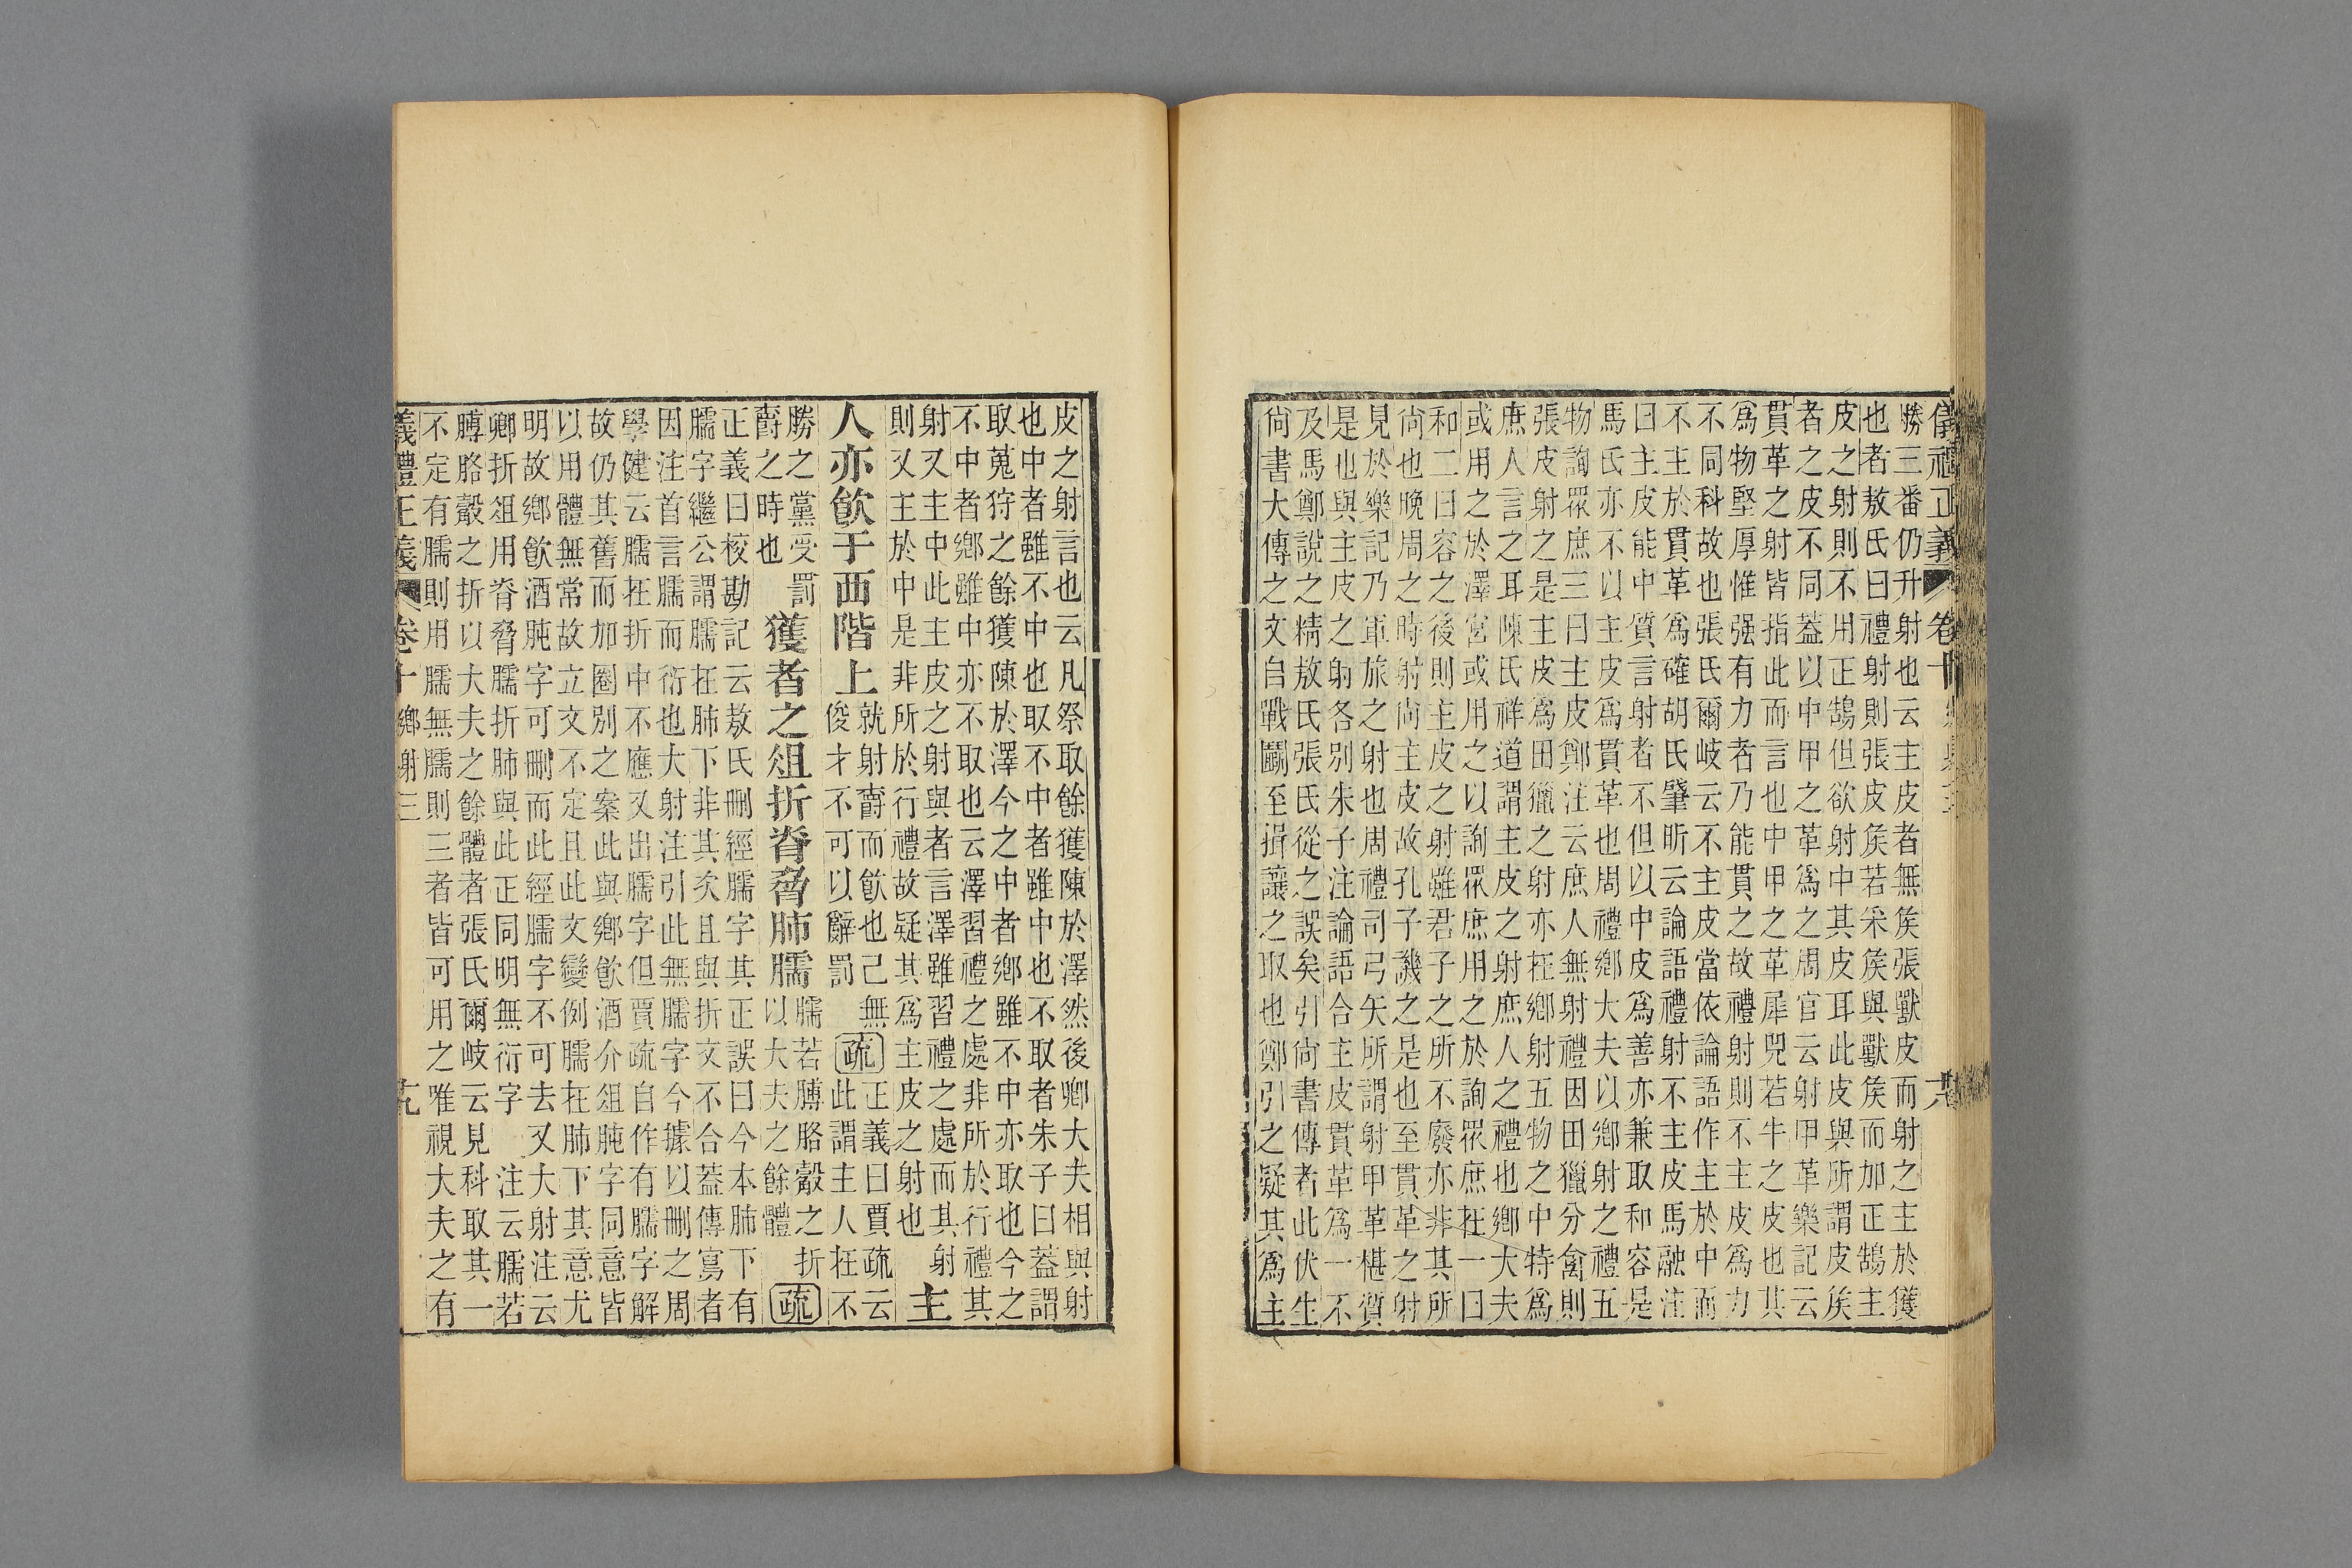 儀禮正義 卷十
勝三番仍升射也云主皮者無侯張獸皮而射之主於獲
也者敖氏曰禮射則張皮侯若采侯與獸侯而加正鵠主
皮之射則不用正鵠但欲射中其皮耳此皮與所謂皮侯
者之皮不同蓋以中甲之革爲之周官云射甲革樂記云
貫革之射皆指此而言也中甲之革犀兕若牛之皮也其
爲物堅厚惟强有力者乃能貫之故禮射則不主皮爲力
不同科故也張氏爾岐云不主皮當依論語作主於中而
不主於貫革爲確胡氏肇昕云論語禮射不主皮馬融注
曰主皮能中質言射者不但以中皮爲善亦兼取和容是
馬氏亦不以主皮爲貫革也周禮鄉大夫以鄉射之禮五
物詢眾庶三曰主皮鄭注云庶人無射禮因田獵分禽則
張皮射之是主皮爲田獵之射亦在鄉射五物之中特爲
庶人言之耳陳氏祥道謂主皮之射庶人之禮也鄉大夫
或用之於澤宮或用之以詢眾庶用之於詢眾庶在一曰
和二曰容之後則主皮之射雖君子之所不廢亦非其所
尙也晚周之時射尙主皮故孔子譏之是也至貫革之射
見於樂記乃軍旅之射也周禮司弓矢所謂射甲革椹質
是也與主皮之射各別朱子注論語合主皮貫革爲一不
及馬鄭說之精敖氏張氏從之誤矣引尙書傳者此伏生
尙書大傳之文自戰鬭至揖讓之取也鄭引之疑其爲主
皮之射言也云凡祭取餘獲陳於澤然後卿大夫相與射
也中者雖不中也取不中者雖中也不取者朱子曰蓋謂
取蒐狩之餘獲陳於澤今之中者鄉雖不中亦取也今之
不中者鄉雖中亦不取也云澤習禮之處非所於行禮其
射又主中此主皮之射與者言澤雖習禮之處而其射
則又主於中是非所於行禮故疑其爲主皮之射也 主
人亦飮于西階上 就射爵而飮也己無俊才不可以辭罰 疏 正義曰賈疏云此謂主人在不
勝之黨受罰爵之時也 獲者之俎折脊脅肺臑 臑若膊胳觳之折以大夫之餘體 疏
正義曰校勘記云敖氏刪經臑字其正誤曰今本肺下有
臑字繼公謂臑在肺下非其次且與折文不合蓋傳寫者
因注首言臑而衍也大射注引此無臑字今據以刪之周
學健云臑在折中不應又出臑字但賈疏自作有臑字解
故仍其舊而加圈別之案此與鄉飮酒介俎肫字同意皆
以用體無常故立文不定且此文變例臑在肺下其意尤
明故鄉飮酒肫字可刪而此經臑字不可去又大射注云
卿折俎用脊脅臑折肺與此正同明無衍字 注云臑若
膊胳觳之折以大夫之餘體者張氏爾岐云見科取其一
不定有臑則用臑無臑則三者皆可用之唯視大夫之有
儀禮正義 卷十 鄉射三